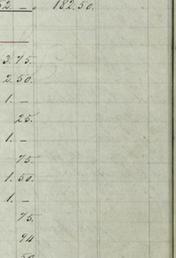 52. – . 182.50.
3.75.
2.50.
1. –
25.
1. –
75.
1.50.
1. –
75.
94
50